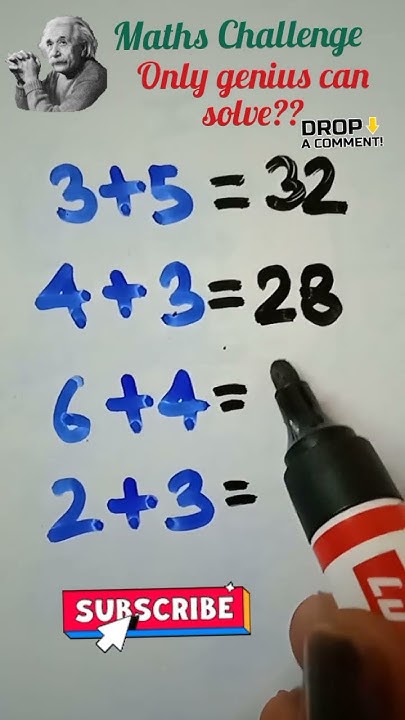 Maths Challenge
Only genius can
solve??
DROP
A COMMENT!
3+5=32
4+3=28
6+4=
2+3=
SUBSCRIBE